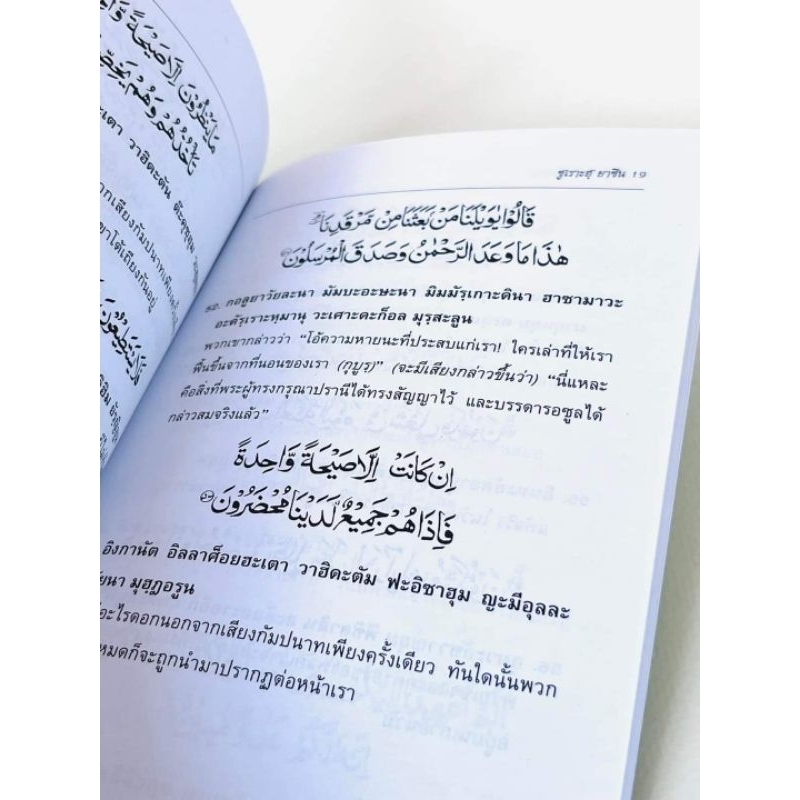 مَا يَنْظُرُونَ اِلَّا صَيْحَةً
تَأْخُذُهُمْ وَهُمْ
วาฮิดะตัน
ซูเราะฮฺ ยาซีน 19
قَالُوْا يٰوَيْلَنَا مَنْ بَعَثَنَا مِنْ مَرْقَدِنَا
هٰذَا مَا وَعَدَ الرَّحْمٰنُ وَصَدَقَ الْمُرْسَلُوْنَ
52. กอลูยาวัยละนา มัมบะอะษะนา มิมมัรฺเกาะดินา ฮาซามาวะ
อะดัรฺเราะหฺมานุ วะเศาะดะก็อล มุรฺสะลูน
พวกเขากล่าวว่า "โอ้ความหายนะที่ประสบแก่เรา! ใครเล่าที่ให้เรา
ฟื้นขึ้นจากที่นอนของเรา (กุบูรฺ)" (จะมีเสียงกล่าวขึ้นว่า) "นี่แหละ
คือสิ่งที่พระผู้ทรงกรุณาปรานีได้ทรงสัญญาไว้ และบรรดารอซูลได้
กล่าวสมจริงแล้ว"
اِنْ كَانَتْ اِلَّا صَيْحَةً وَّاحِدَةً
فَاِذَا هُمْ جَمِيْعٌ لَّدَيْنَا مُحْضَرُوْنَ
อิงกานัต อิลลาศ็อยฮะเตา วาฮิดะตัม ฟะอิซาฮุม ญะมีอุลละ
ยนา มุฮฺฎอรูน
อะไรดอกนอกจากเสียงกัมปนาทเพียงครั้งเดียว ทันใดนั้นพวก
หมดก็จะถูกนำมาปรากฏต่อหน้าเรา